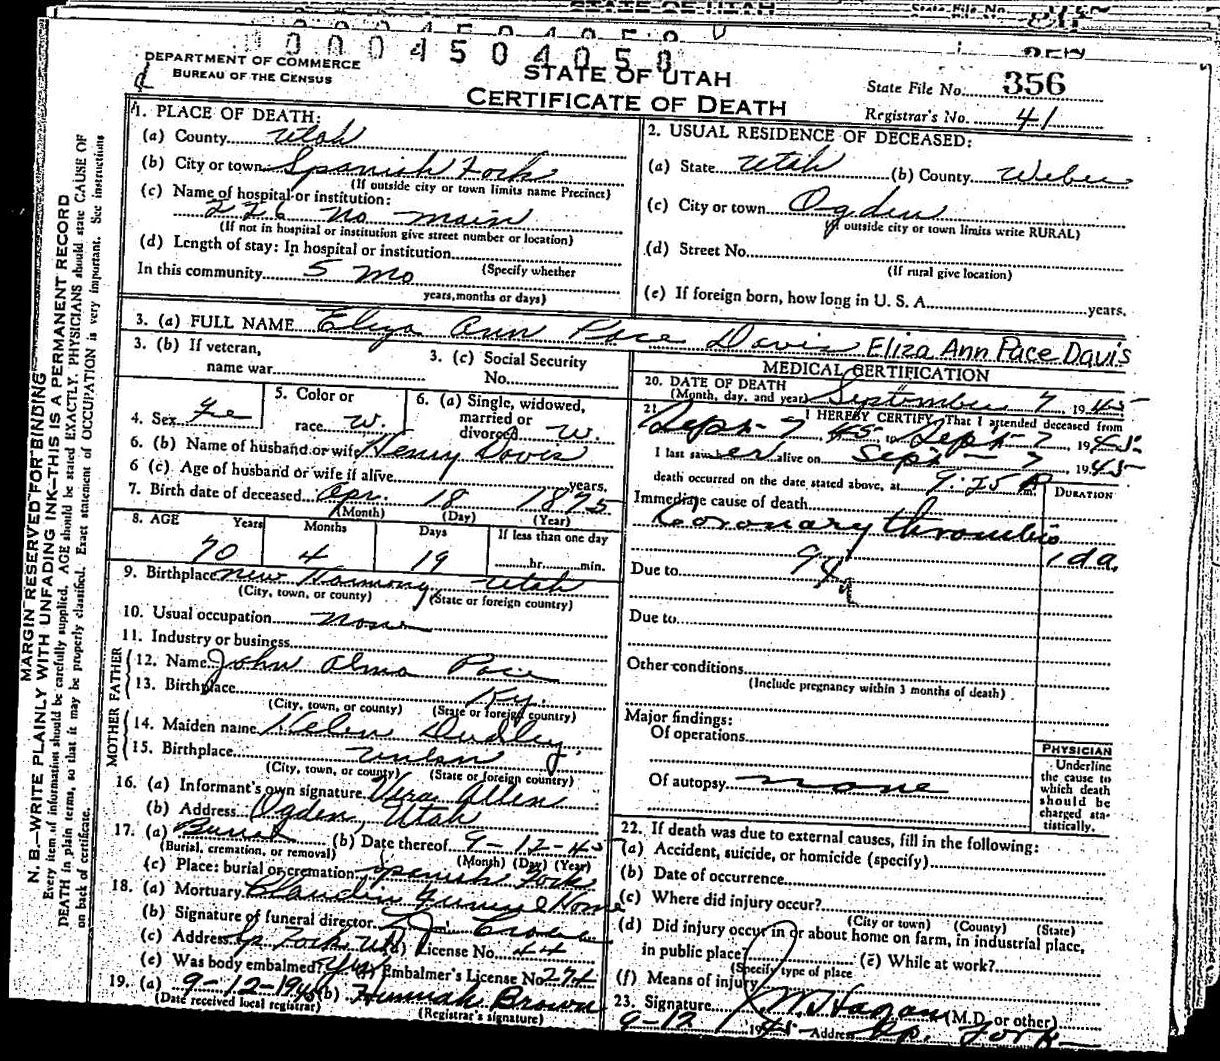 STATE OF UTAH
State File No.
0004504050
DEPARTMENT OF COMMERCE
BUREAU OF THE CENSUS
STATE OF UTAH
CERTIFICATE OF DEATH
State File No. 356
Registrar's No. 41
MARGIN RESERVED FOR BINDING
N. B.—WRITE PLAINLY WITH UNFADING INK—THIS IS A PERMANENT RECORD
Every item of information should be carefully supplied. AGE should be stated EXACTLY. PHYSICIANS should state CAUSE OF
DEATH in plain terms, so that it may be properly classified. Exact statement of OCCUPATION is very important. See instructions
on back of certificate.
1. PLACE OF DEATH:
(a) County Utah
(b) City or town Spanish Fork
(If outside city or town limits name Precinct)
(c) Name of hospital or institution:
226 no main
(If not in hospital or institution give street number or location)
(d) Length of stay: In hospital or institution
(Specify whether
In this community 5 mo
years, months or days)
2. USUAL RESIDENCE OF DECEASED:
(a) State Utah (b) County Weber
(c) City or town Ogden
(If outside city or town limits write RURAL)
(d) Street No.
(If rural give location)
(e) If foreign born, how long in U. S. A. years.
3. (a) FULL NAME Eliza Ann Pace Davis Eliza Ann Pace Davis
3. (b) If veteran,
name war
3. (c) Social Security
No.
4. Sex Fe
5. Color or
race W.
6. (a) Single, widowed,
married or
divorced W.
6. (b) Name of husband or wife Henry Davis
6 (c) Age of husband or wife if alive years.
7. Birth date of deceased Apr. 18 1875
(Month) (Day) (Year)
8. AGE Years Months Days If less than one day
70 4 19 hr. min.
9. Birthplace New Harmony, Utah
(City, town, or county) (State or foreign country)
10. Usual occupation none
11. Industry or business
FATHER
12. Name John Alma Pace
13. Birthplace Ky.
(City, town, or county) (State or foreign country)
MOTHER
14. Maiden name Helen Dudley.
15. Birthplace
(City, town, or county) (State or foreign country)
16. (a) Informant's own signature Vera Allen
(b) Address Ogden, Utah
17. (a) Burial (b) Date thereof 9-12-45
(Burial, cremation, or removal) (Month) (Day) (Year)
(c) Place: burial or cremation Spanish Fork
18. (a) Mortuary Claudin Funeral Home
(b) Signature of funeral director
(c) Address Sp. Fork Ut (d) License No. 44
(e) Was body embalmed? Yes Embalmer's License No. 274
19. (a) 9-12-1945 (b) Hannah Brown
(Date received local registrar) (Registrar's signature)
MEDICAL CERTIFICATION
20. DATE OF DEATH
(Month, day, and year) September 7 1945
21. I HEREBY CERTIFY, That I attended deceased from
Sept-7 45 to Sept-7 1945
I last saw her alive on Sept-7 1945
death occurred on the date stated above, at 9:25 P m.
DURATION
Immediate cause of death
Coronary thrombis
1 da.
Due to 94a
Due to
Other conditions
(Include pregnancy within 3 months of death)
Major findings:
Of operations
Of autopsy none
PHYSICIAN
Underline
the cause to
which death
should be
charged sta-
tistically.
22. If death was due to external causes, fill in the following:
(a) Accident, suicide, or homicide (specify)
(b) Date of occurrence
(c) Where did injury occur?
(City or town) (County) (State)
(d) Did injury occur in or about home on farm, in industrial place,
in public place? (e) While at work?
(Specify type of place
(f) Means of injury
23. Signature J. W. Hagan (M.D. or other)
9-12 1945 Address Sp. Fork